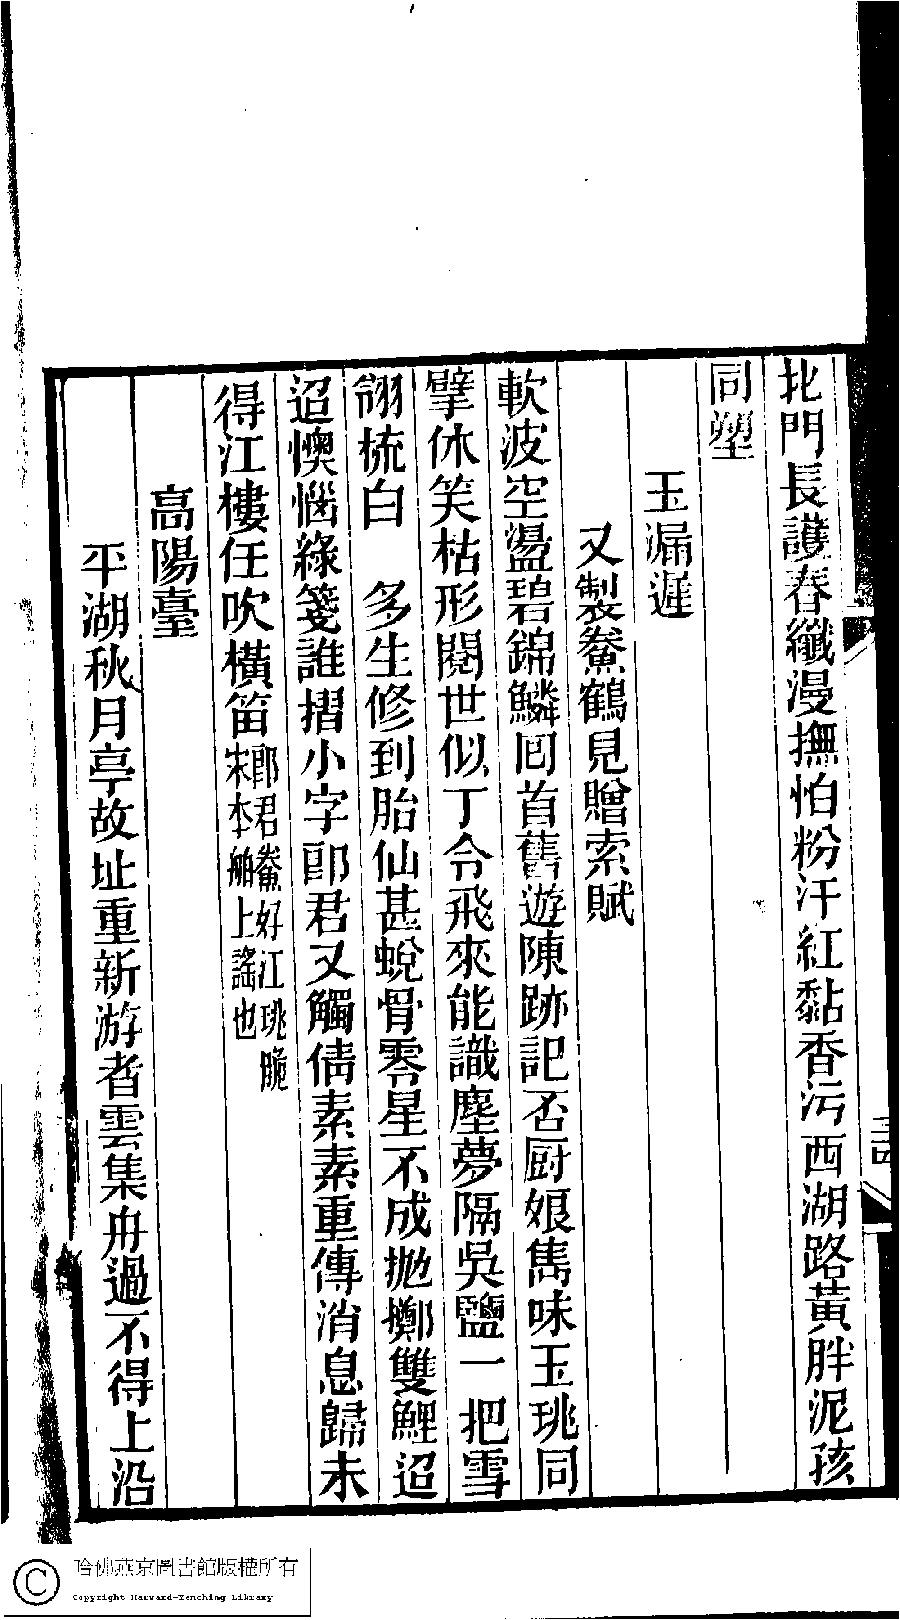 北門長護春纖漫撫怕粉汗紅黏香污西湖路黃胖泥孩
同塑
玉漏遲
又製鮝鶴見贈索賦
軟波空盪碧錦鱗回首舊遊陳跡記否厨娘雋味玉珧同
擘休笑枯形閱世似丁令飛來能識塵夢隔吳鹽一把雪
翎梳白　多生修到胎仙甚蛻骨零星不成拋擲雙鯉迢
迢懊惱綠箋誰摺小字郎君又觸倩素素重傳消息歸未
得江樓任吹橫笛
郎君鮝好江珧脆
宋本舶上謠也
高陽臺
平湖秋月亭故址重新游者雲集舟過不得上沿
哈佛燕京圖書館版權所有
Copyright Harvard-Yenching Library